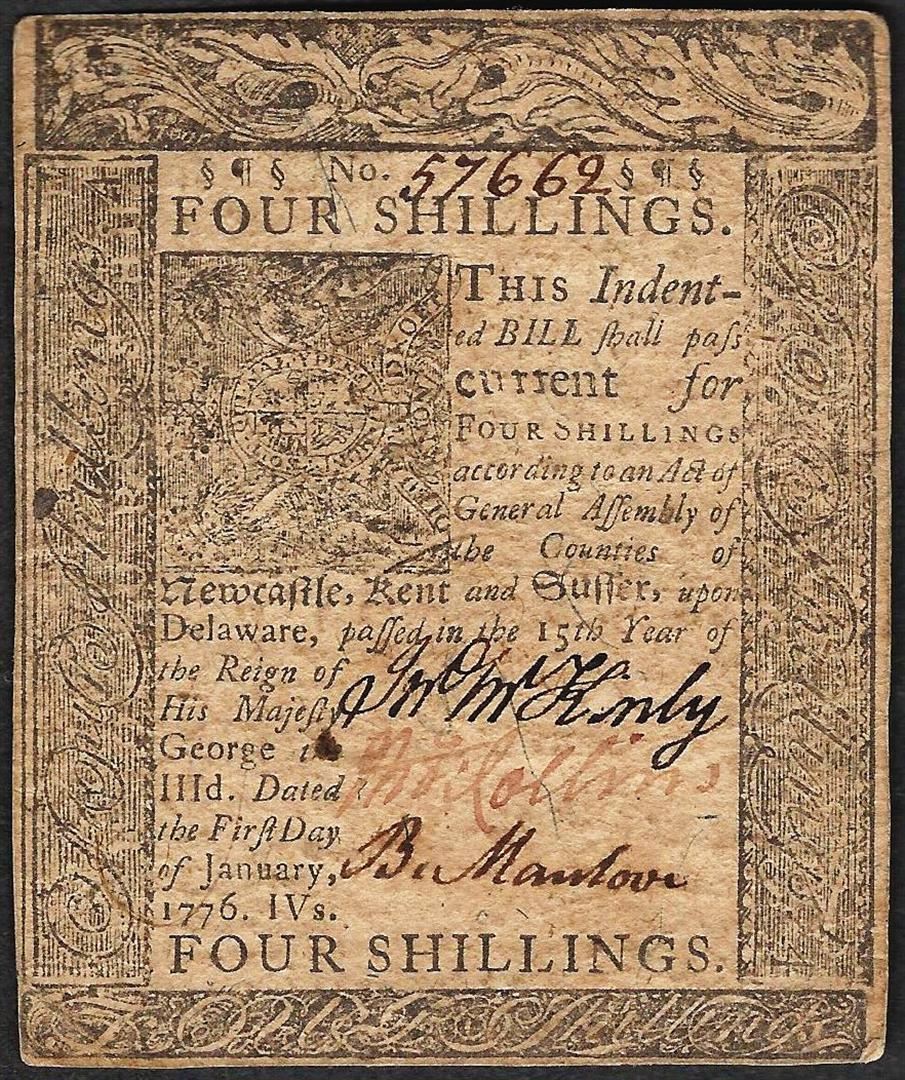 § ¶ § No. 57662 § ¶ §
FOUR SHILLINGS.
THIS Indent-
ed BILL ſhall paſs
current for
FOUR SHILLINGS
according to an Act of
General Aſſembly of
the Counties of
Newcaſtle, Kent and Suſſex, upon
Delaware, paſſed in the 15th Year of
the Reign of
His Majeſty
George the
IIId. Dated
the Firſt Day
of January,
1776. IVs.
Jno McKinly
Collins
Bo Manlove
FOUR SHILLINGS.
Four Shillings
Four Shillings
Four Shillings